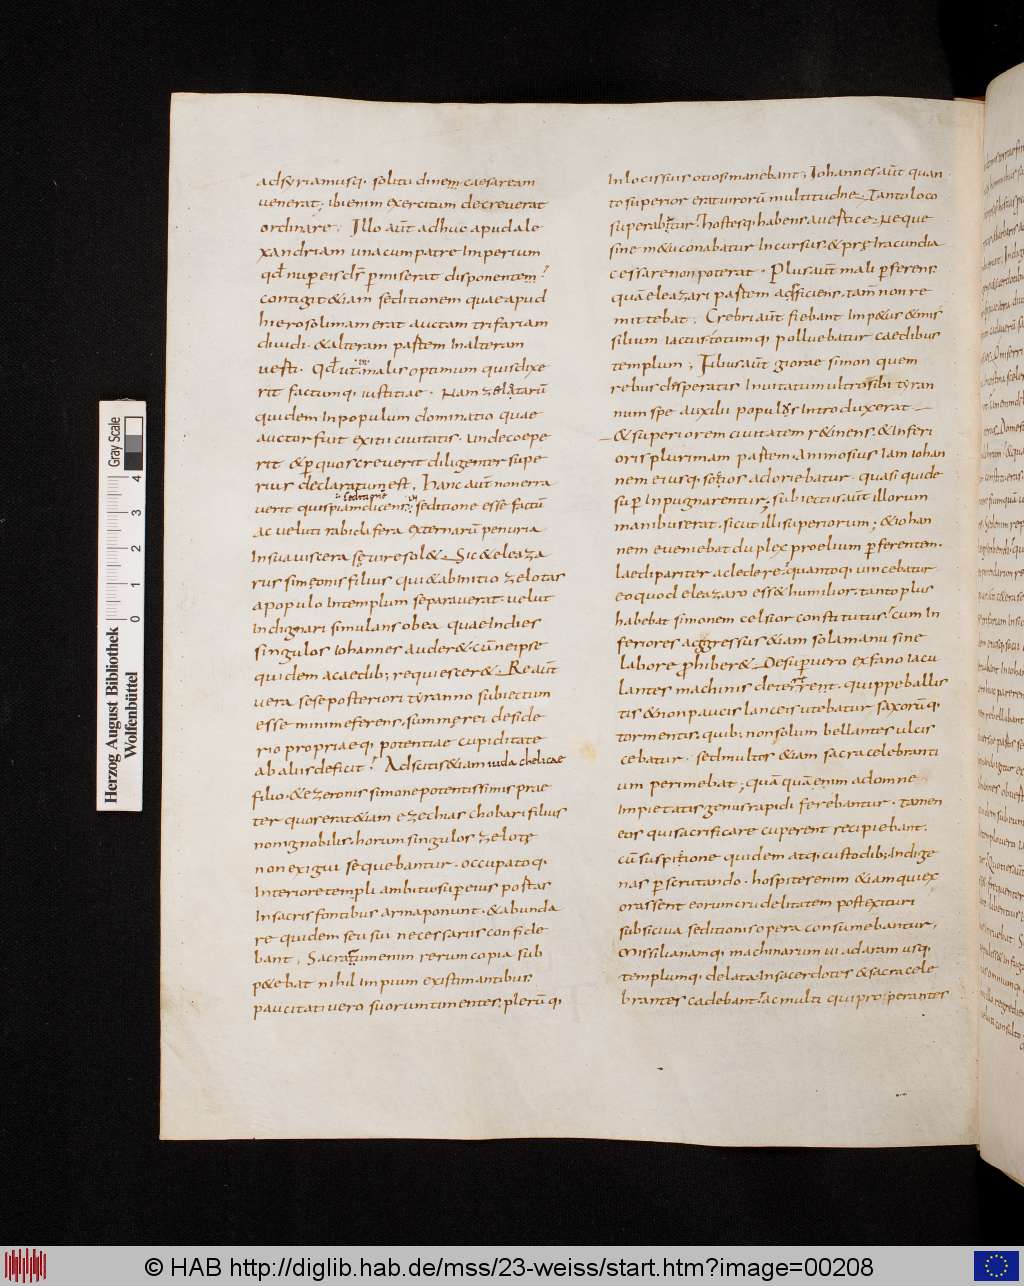 adsyriamusq· solitudinem caesaream
venerat; ibi enim exercitum decreverat
ordinare; Illo aūt adhuc apud ale
xandriam una cum patre Imperium
qd nuper eis ds permiserat disponentem
contigit &iam seditionem quae apud
hierosolimam erat auctam trifariam
dividi· & alteram partem In alteram
verti· Qd ut in malis optimum quis dixe
rit factumq; iustitiae· Nam zelotarū
quidem In populum dominatio quae
auctur fuit exitii civitatis· unde coepe
rit & per quos creverit diligenter supe
rius declaratum est, hanc aūt non erra
verit quispiam dicens seditione esse factū
ac veluti rabida fera externarū penuria
In sua viscera sevire sol& Sic & eleaza
rus simeonis filius qui & ab initio zelotas
a populo In templum separaverat· velut
Indignari simulans ob ea quae Indies
singulos iohannes auder& cū ne ipse
quidem a caedib; requiescer& Re aūt
vera sese posteriori tyranno subiectum
esse minime ferens, summe rei deside
rio propriaeq; potentiae cupiditate
ab aliis deficit Adscitis &iam iuda chelicae
filio· & ezeronis simone potentissimis prae
ter quos erat &iam ezechias chobari filius
non ignobilis· horum singulos zelotę
non exigui sequebantur· occupatoq;
Interiore templi ambitu super eius portas
In sacris fontibus arma ponunt· & abunda
re quidem sesui necessariis confide
bant, Sacratum enim rerum copia sub
p&ebat nihil Impium existimantibus,
paucitati vero suorum timentes, plerūq;
In locis suis otiosi manebant; Iohannes aūt quan
to superior erat virorū multitudine Tanto loco
superabatur hostesq; habens a vertice Neque
sine m&u conabatur Incursus & prę Iracundia
cessare non poterat· Plus aūt mali perferens
quā eleazari partem adficiens, tam non re
mittebat; Crebri aūt fiebant Imp&us & mis
silium iactus totumq; polluebatur caedibus
templum; Tibus aūt giorae simon quem
rebus desperatis Invitatum ultro sibi tyran
num spe auxilii populus Introduxerat
& superiorem civitatem r&inens, & Inferi
oris plurimam partem Animosius iam iohan
nem eiusq; socios adoriebatur· quasi quide
sup Inpugnarentur; subiectus aūt illorum
manibus erat· sicut illi superiorum; & iohan
nem eveniebat duplex proelium perferentem·
laedi pariter ac ledere quantoq; vincebatur
eo quod eleazaro ess& humilior· tanto plus
habebat simonem celsior constitutus cum In
feriores aggressus &iam sola manu sine
labore prohiber& Desuper vero ex fano iacu
lantes machinis deterrent· quippe ballis
tis & non paucis lanceis utebatur saxorūq;
tormentis, quib; non solum bellantes ulcis
cebatur· sed multos &iam sacra celebranti
um perimebat; quā quā enim ad omne
Impietatis genus rapidi ferebantur· tamen
eos qui sacrificare cuperent recipiebant·
cū suspicione quidem atq; custodib; Indige
nas perscrutando· hospites enim &iam qui ex
orassent eorum crudelitatem post exituri
subsiciva seditionis opera consumebantur,
Missilia namq; machinarum vi ad aram usq;
templumq; delata In sacerdotes & sacra cele
brantes cadebant ac multi qui properantes
Herzog August Bibliothek
Wolfenbüttel
0 1 2 3 4
Gray Scale
© HAB http://diglib.hab.de/mss/23-weiss/start.htm?image=00208